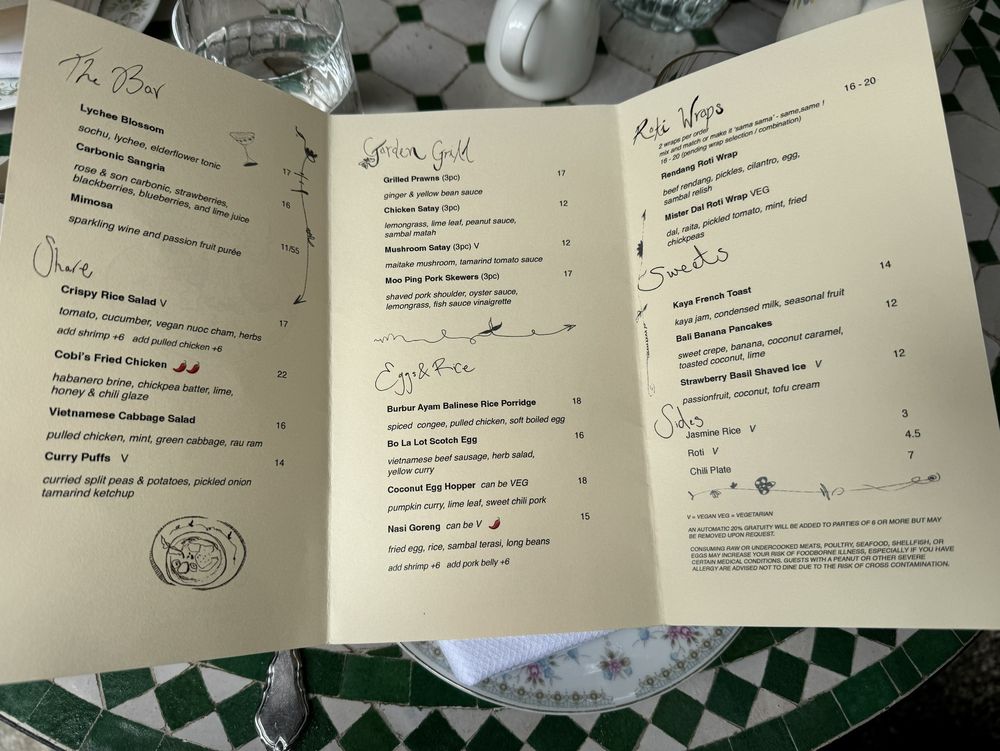 The Bar
Lychee Blossom
sochu, lychee, elderflower tonic
17
Carbonic Sangria
rose & son carbonic, strawberries,
blackberries, blueberries, and lime juice
16
Mimosa
sparkling wine and passion fruit purée
11/55
Share
Crispy Rice Salad V
tomato, cucumber, vegan nuoc cham, herbs
17
add shrimp +6 add pulled chicken +6
Cobi's Fried Chicken
22
habanero brine, chickpea batter, lime,
honey & chili glaze
Vietnamese Cabbage Salad
16
pulled chicken, mint, green cabbage, rau ram
Curry Puffs V
14
curried split peas & potatoes, pickled onion
tamarind ketchup
Garden Grill
Grilled Prawns (3pc) 17
ginger & yellow bean sauce
Chicken Satay (3pc) 12
lemongrass, lime leaf, peanut sauce,
sambal matah
Mushroom Satay (3pc) V 12
maitake mushroom, tamarind tomato sauce
Moo Ping Pork Skewers (3pc) 17
shaved pork shoulder, oyster sauce,
lemongrass, fish sauce vinaigrette
Eggs & Rice
Burbur Ayam Balinese Rice Porridge 18
spiced congee, pulled chicken, soft boiled egg
Bo La Lot Scotch Egg 16
vietnamese beef sausage, herb salad,
yellow curry
Coconut Egg Hopper can be VEG 18
pumpkin curry, lime leaf, sweet chili pork
Nasi Goreng can be V 15
fried egg, rice, sambal terasi, long beans
add shrimp +6 add pork belly +6
Roti Wraps 16 - 20
2 wraps per order
mix and match or make it 'sama sama' - same,same !
16 - 20 (pending wrap selection / combination)
Rendang Roti Wrap
beef rendang, pickles, cilantro, egg,
sambal relish
Mister Dal Roti Wrap VEG
dal, raita, pickled tomato, mint, fried
chickpeas
Sweets
Kaya French Toast 14
kaya jam, condensed milk, seasonal fruit
Bali Banana Pancakes 12
sweet crepe, banana, coconut caramel,
toasted coconut, lime
Strawberry Basil Shaved Ice V 12
passionfruit, coconut, tofu cream
Sides
Jasmine Rice V 3
Roti V 4.5
Chili Plate 7
V = VEGAN VEG = VEGETARIAN
AN AUTOMATIC 20% GRATUITY WILL BE ADDED TO PARTIES OF 6 OR MORE BUT MAY
BE REMOVED UPON REQUEST.
CONSUMING RAW OR UNDERCOOKED MEATS, POULTRY, SEAFOOD, SHELLFISH, OR
EGGS MAY INCREASE YOUR RISK OF FOODBORNE ILLNESS, ESPECIALLY IF YOU HAVE
CERTAIN MEDICAL CONDITIONS. GUESTS WITH A PEANUT OR OTHER SEVERE
ALLERGY ARE ADVISED NOT TO DINE DUE TO THE RISK OF CROSS CONTAMINATION.